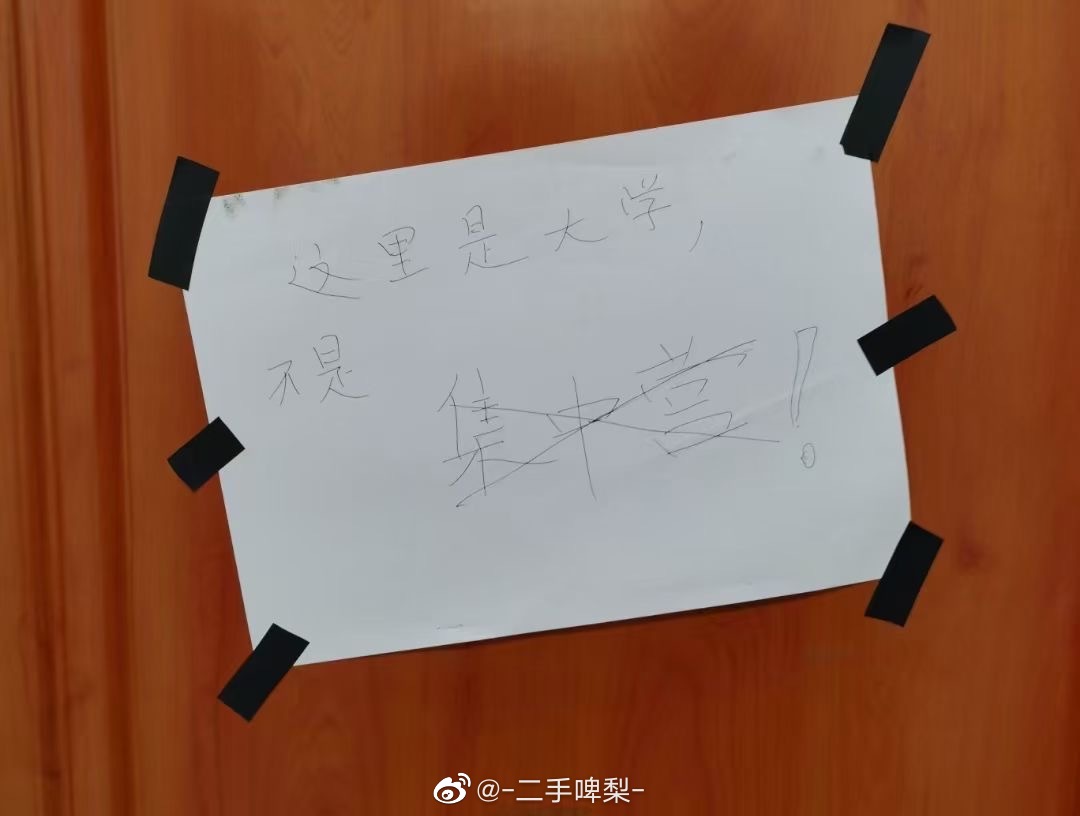 这里是大学，
不是 集中营！
@-二手啤梨-